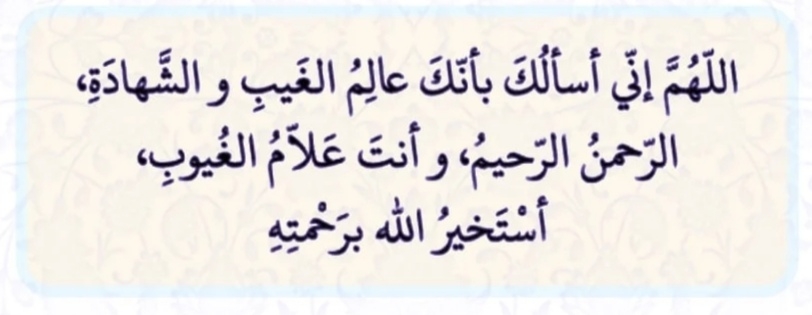 اللّهُمَّ إنّي أسألُكَ بأنّكَ عالِمُ الغَيبِ و الشَّهادَةِ،
الرّحمنُ الرّحيمُ، و أنتَ عَلاّمُ الغُيوبِ،
أسْتَخيرُ الله برَحْمتِهِ